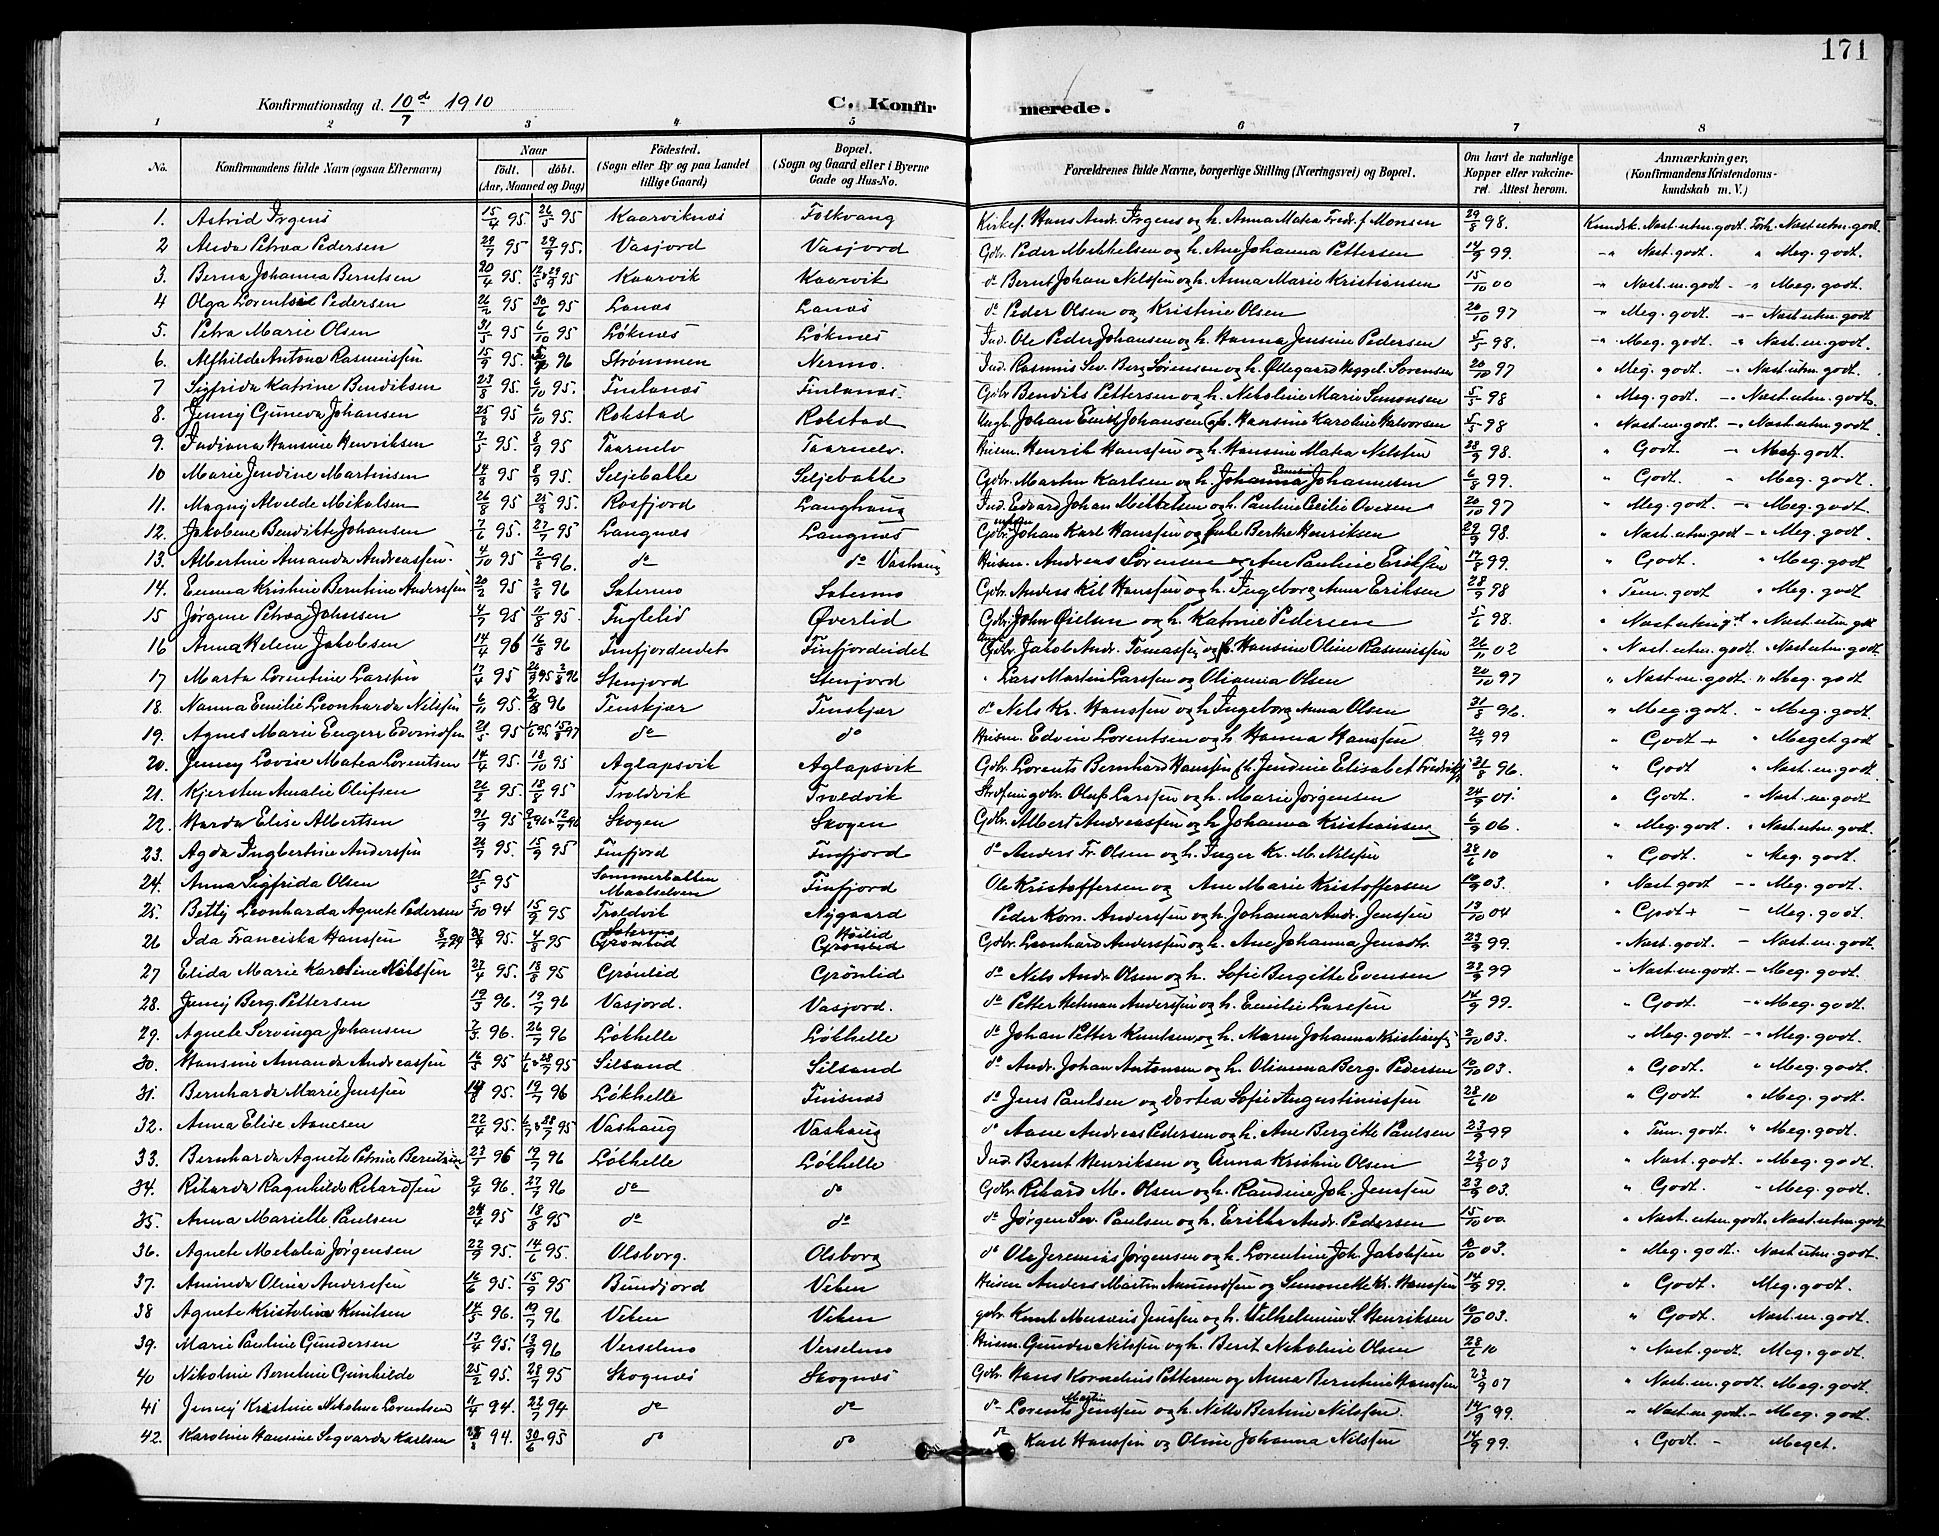 171
Konfirmationsdag d. 10d/7 1910 C. Konfirmerede.
1 2 3 4 5 6 7 8
No. Konfirmandens fulde Navn (ogsaa Efternavn) Naar født. døbt. (Aar, Maaned og Dag) Födested. (Sogn eller By og paa Landet tillige Gaard) Bopæl. (Sogn og Gaard eller i Byerne Gade og Hus-No. Forældrenes fulde Navne, borgerlige Stilling (Næringsvei) og Bopæl. Om havt de naturlige Kopper eller vaccineret. Attest herom. Anmærkninger, (Konfirmandens Kristendomskundskab m. V.)
1. Astrid Irgens 15/4 95 26/5 95 Kaarviknæs Folkvang Kirkes. Hans Andr. Irgens og h. Anna Matea Fredr. f. Monsen 29/8 98. Kundsk. Nast. utm. godt. Forh. Nast. utm. godt.
2 Alida Petrea Pedersen 20/7 95 29/9 95. Vasjord Vasjord Gbr. Peder Mikkelsen og h. Ane Johanna Pettersen 14/9 99. " Nast. godt. " Meg. godt.
3. Berna Johanna Berntsen 20/4 95. 12/5 29/9 95 Kaarvik Kaarvik do Bernt Johan Nilssen og h. Anna Marie Kristiansen 15/10 00 " Nast. m. godt. " Meg. godt.
4 Olga Lorentse Pedersen 26/2 95 30/6 95 Lanæs Lanæs do Peder Olsen og Kristine Olsen 20/10 97 " Meg. godt. " Nast. utm. godt.
5. Petra Marie Olsen 31/5 95 6/10 95 Løknæs Løknæs Ind. Ole Peder Johansen og h. Hanna Jensine Pedersen 5/5 98. " Meg. godt. " Nast. utm. godt.
6. Alfhilde Antona Rasmussen 15/9 95. 96 Strømmen Nermo. Ind. Rasmus Sev. Berg Sørensen og h. Øllegaard Sørensen 20/10 97 " Meg. godt. " Nast. utm. godt.
7 Sigfrida Katrine Bendiksen 23/8 95. 6/10 95. Finlanæs Finlanæs. Gdbr Bendiks Pettersen og h. Nikoline Marie Simonsen 5/5 98 " Meg. godt. " Nast. utm. godt.
8. Jenny Guneva Johansen 25/8 95 6/10 95. Rokstad Rokstad Ungk. Johan Emil Johansen og Hansine Karoline Halvorsen 5/5 98 " Nast. m. godt. " Nast. utm. godt.
9. Indiana Hansine Henriksen 7/5 95. 8/9 95 Taarnelv Taarnelv. Husm. Henrik Hanssen og h. Hansine Matea Nilssen 28/9 98. " Godt. Meg. godt.
10 Marie Jendine Martinsen 14/8 95 8/9 95. Seljebakke Seljebakke Gdbr. Martin Karlsen og h. Johanna Johannesen 6/8 99. " Godt. " Meg. godt.
11. Magny Alvelde Mikalsen 26/8 95 25/8 95. Rosfjord Langhaug Ind. Edvard Johan Mikkelsen og h. Pauline Cecilie Ovesen 20/10 97 " Meg. godt. " Meg. godt.
12. Jakobine Bendikte Johansen 7/6 95. 27/7 95 Langnæs Langnæs Gdbr. Johan Karl Hanssen og Berthe Henriksen 29/9 98. " Nast. utm. godt. " Meg. godt.
13. Albertine Amanda Andreassen. 4/10 95 2/8 96. do do Vashaug Husm. Andreas Sørensen og Ane Pauline Eriksen 17/8 99. " Godt. " Meg. godt
14. Emma Kristine Berntine Anderssen 20/2 95 2/8 96 Sætermo Sætermo Gdbr. Anders Kil Hanssen og h. Ingeborg Anna Eriksen 28/9 98 " Tem. godt. " Meg. godt
15 Jørgine Petrea Johnsen 4/7 95 11/8 95. Inglelid Øverlid Gdbr. John Øielsen og h. Katrine Pedersen 5/6 98. " Nast. utm. gt. " Nast. utm. godt
16 Anna Helene Jakobsen 14/4 96 16/8 96 Finfjordeidet Finfjordeidet Gdbr. Jakob Andr. Tomassen og h. Hansine Oline Rasmussen 26/11 02 " Nast. utm. godt. " Nast. utm. godt
17 Marta Lorentine Larssen 17/4 95 26/9 95 2/8 96 Stenjord Stenjord " Lars Martin Larssen og Olianna Olsen 20/10 97 " Nast. m. godt. " Meg. godt.
18. Nanna Emilie Leonharda Nilssen 6/11 95. 2/8 96 Tenskjær Tenskjær do Nels Kr. Hanssen og h. Ingeborg Anna Olsen 31/8 96. " Meg. godt. " Meg. godt.
19. Agnes Marie Eugeni Edvindsen 21/5 95 1/6 95 15/8 97 do do Husm. Edvin Lorentsen og h. Hanna Hanssen 20/7 99 " Godt + " Meget godt
20. Jenny Lovise Matea Lorentsen 14/4 95. 18/10 95 Aglapsvik Aglapsvik Gdbr. Lorents Bernhard Hanssen og h. Jendine Elisabet Fredriks. 21/8 96. " Godt " Nast. m. godt.
21. Kjersten Amalie Olufsen 26/2 95. 18/8 95 Troldvik Troldvik gdbr. Oluf Larssen og h. Marie Jørgensen 24/9 01. " Godt. " Nast. m. godt
22. Harda Elise Albertsen 21/9 95 9/2 96 12/7 96 Skogen Skogen Gdbr. Albert Andreassen og h. Johanna Kristiansen 6/9 06. " Meg. godt. " Nast. utm. godt.
23. Agda Ingbertine Anderssen 21/7 95. 15/9 95 Finfjord Finfjord do Anders Fr. Olsen og h. Inger Kr. M. Nilssen 28/6 10 " Godt. " Meg. godt.
24. Anna Sigfrida Olsen 25/5 95 Sommerbakken Maalselven Finfjord Ole Kristoffersen og Ane Marie Kristoffersen 10/9 03. " Nast. godt " Meg. godt.
25. Betty Leonharda Agnete Pedersen 5/10 94 15/9 95 Troldvik Nygaard Peder Korn. Anderssen og h. Johanna Andr. Jenssen 13/10 04 " Godt + Meg. godt.
26 Ida Franciska Hanssen 8/7 94 22/4 95. 4/8 95 Sætermo Grönlid Høilid Grönlid Gdbr. Leonhard Anderssen og h. Ane Johanna Jensdtr. 23/9 99. " Nast. godt. Nast. m. godt.
27 Elida Marie Karoline Nilssen 22/4 95. 18/8 95 Grönlid Grönlid do Nels Andr. Olsen og h. Sofie Birgitte Evensen 23/9 99 " Nast. m. godt Meg. godt.
28. Jenny Berg. Pettersen 19/3 96. 19/7 96 Vasjord. Vasjord. do Petter Helman Anderssen og h. Emilie Larssen 14/9 99. " Godt. Meg. godt.
29. Agnete Servinga Johansen 2/3 96. 26/7 96 Løkhelle Løkhelle do Johan Petter Knutsen og h. Maren Johanna Kristians. 2/10 03. " Meg. godt " Meg. godt.
30. Hansine Amanda Andreassen 16/5 95 28/7 95 Silsand Silsand do Andr. Johan Antonsen og h. Olianna Berg. Pedersen 10/10 03. " Godt. " Meg. godt.
31. Bernharda Marie Jenssen 95. 19/7 96 Løkhelle Finsnæs do Jens Paulsen og Dortea Sofie Augustinussen 28/6 10 " Godt " Meg. godt.
32. Anna Elise Aanesen 22/4 95. 28/7 95 Vashaug Vashaug do Aane Andreas Pedersen og h. Ane Bergitte Paulsen 23/9 99 " Tem. godt. " Meg. godt.
33. Bernharda Agnete Petrine Berntsen 23/1 96 19/7 96 Løkhelle Løkhelle Ind. Bernt Henriksen og Anna Kristine Olsen 23/9 03 " Nast. godt. Meg. godt.
34. Rikarda Ragnhilde Rikardsen 2/4 96. 27/7 96 do do Gdbr. Rikard M. Olsen og h. Randine Joh. Jenssen 23/9 03. " Godt. " Meg. godt.
35. Anna Marielle Paulsen 24/4 95 18/8 95 do do do Jørgen Sev. Paulsen og h. Erikke Andr. Pedersen 15/10 00 " Nast. utm. godt. Nast. utm. godt
36. Agnete Mekalia Jørgensen 22/9 95. 14/6 95. Olsborg. Olsborg do Ole Jeremias Jørgensen og h. Lorentine Joh. Jakobsen 10/10 03. " Meg. godt. Nast. utm. godt.
37. Aminda Oline Anderssen 16/6 95. 15/9 95 Bundjord Veken Husm Anders Martin Amundsen og Simonette Kr. Hanssen 14/9 99. " Godt. Meg. godt.
38 Agnete Kristoline Knutsen 14/5 96. 19/7 96 Veken Veken gdbr. Knut Mesenis Jenssen og h. Vilhelmine S. Henriksen 10/10 03. " Godt. Nast. m. godt.
39. Marie Pauline Gundersen 17/4 95. 13/9 96 Verselmo Verselmo Husm. Gunder Nilssen og h. Berit Nikoline Olsen 28/6 10 " Nast. godt. Meg. godt.
40 Nikoline Berntine Gunhilde 25/2 95. 28/7 95 Skognæs Skognæs Gdbr Hans Kornelius Pettersen og Anna Berntine Hanssen 23/9 07 " Nast. m. godt. Meg. godt.
41 Jenny Kristine Nikoline Lorentsen 11/4 94. 22/7 94 do do do Lorents Martin Jenssen og h. Nille Bertine Nilssen. 14/9 99. " Nast. m. godt. Meg. godt.
42. Karoline Hansine Segvarda Karlsen 94. 30/6 95 do do do Karl Hanssen og Oline Johanna Nilssen 14/9 99. " Godt. Meget.